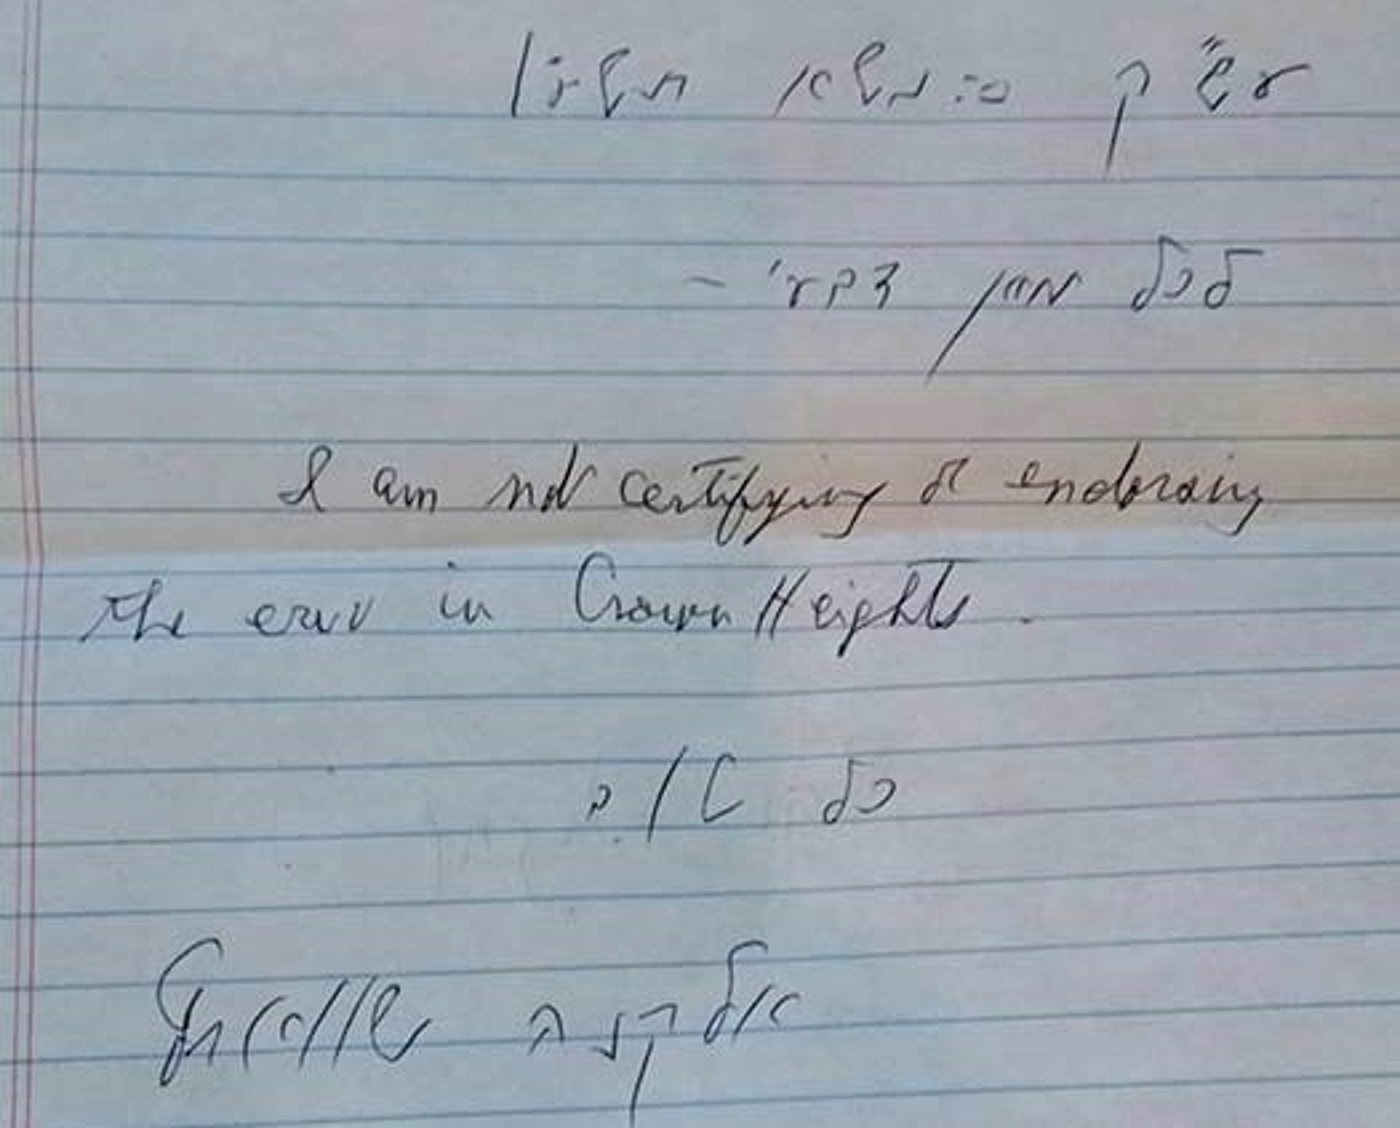 עש"ק פ: נשא תשע"ו
לכל מאן דבעי –
I am not certifying or endorsing
the eruv in Crown Heights.
כל טוב
אלקנה שווארץ